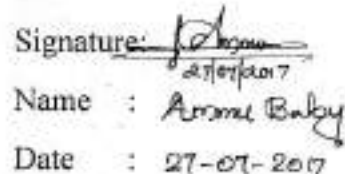 Signature:
27/07/2017
Name : Ammu Baby
Date : 27-07-2017